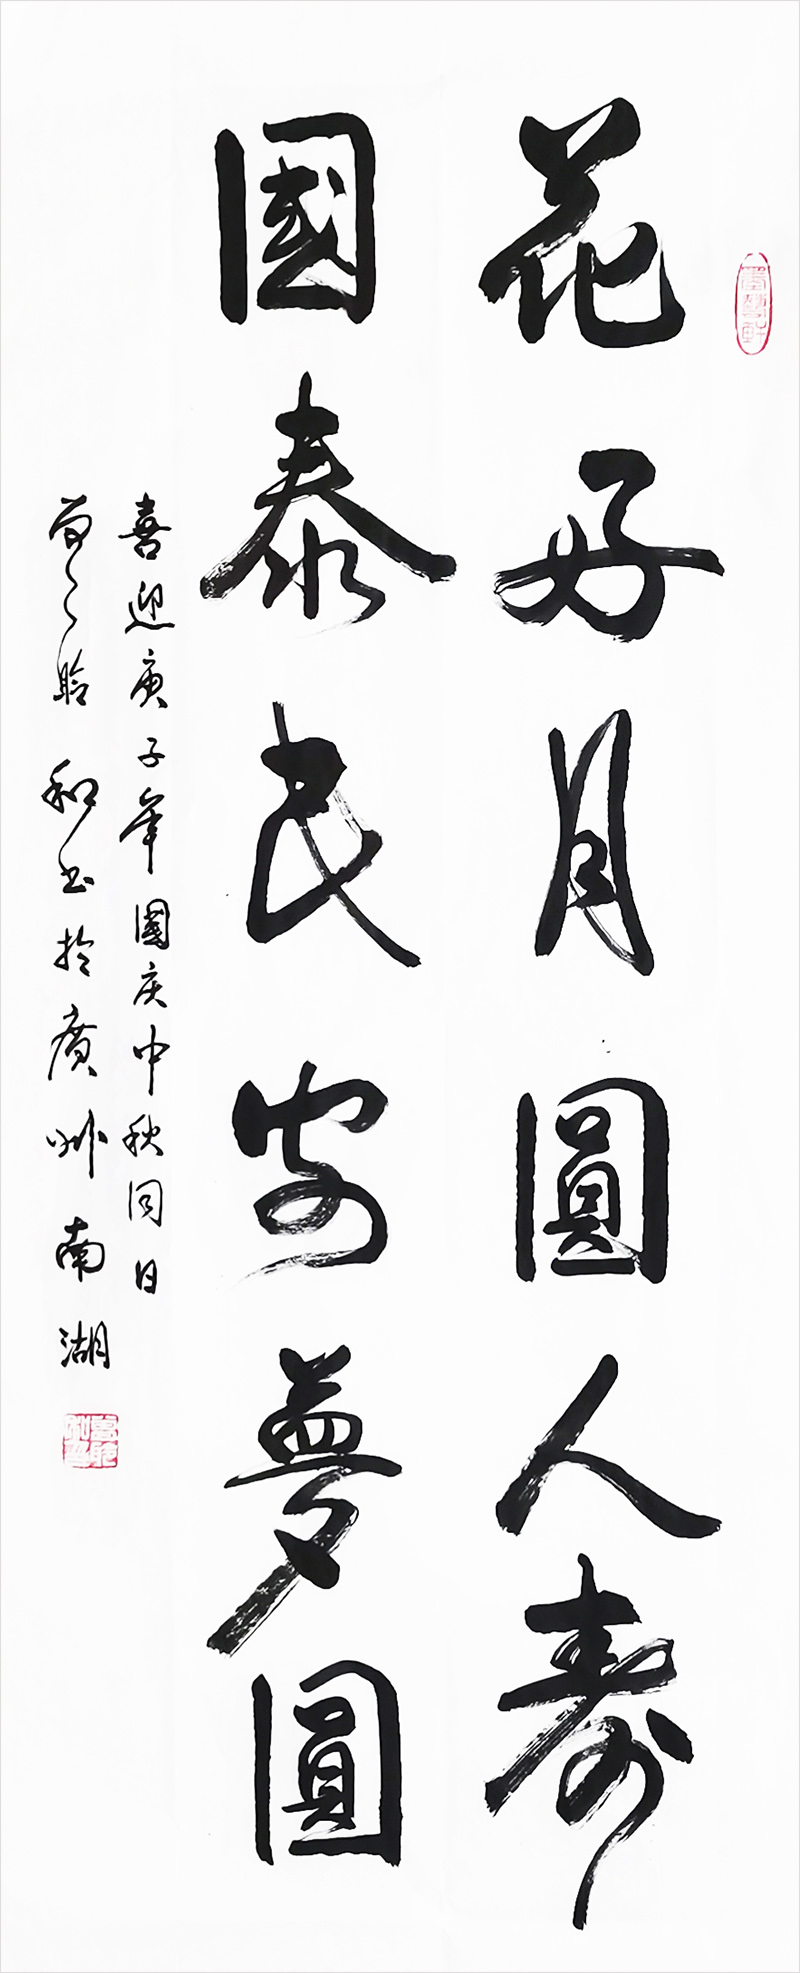 花好月圓人寿
國泰民安夢圓
喜迎庚子年國庆中秋同日
和书於廣州南湖